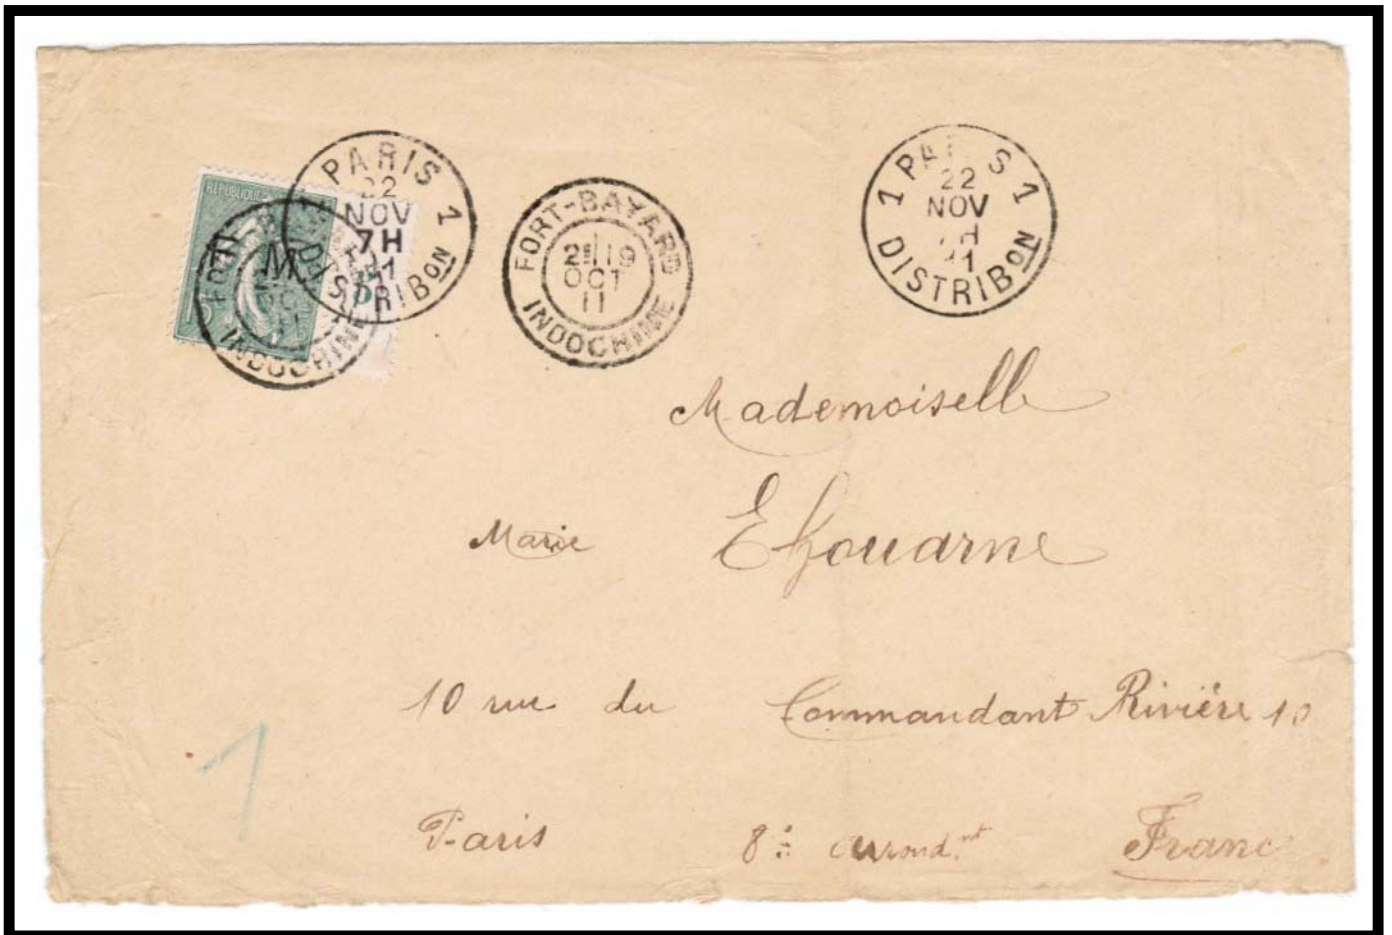 RÉPUBLIQUE
M
PARIS 1
22
NOV
7H
11
DISTRIBON
INDOCHINE
FORT-BAYARD
2E 19
OCT
11
INDOCHINE
1 PARIS 1
22
NOV
7H
11
DISTRIBON
Mademoiselle
Marie Ehouarne
10 rue du Commandant Rivière 10
Paris 8e arrond.nt France
1